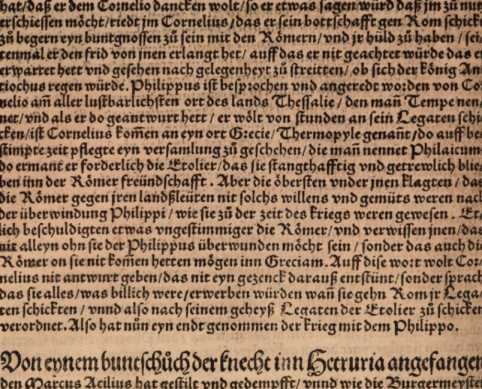 hat/daß er dem Cornelio dancken wolt/so er etwas sagen würd daß jm zu nutz
erschiessen möcht/riedt jm Cornelius/das er sein bottschafft gen Rom schick
zů begern eyn buntgnossen zů sein mit den Römern/vnd jr huld zů haben/sei/
tenmal er den frid von jnen erlangt het/auff das er nit geachtet würde das er
erwartet hett vnd gesehen nach gelegenheyt zů streitten/ob sich der könig An
tiochus regen würde. Philippus ist besprochen vnd angeredt worden von Cor
nelio am̃ aller lustbarlichsten ort des lands Thessalie/den mañ Tempe nen/
net/vnd als er do geantwurt hett/er wölt von stunden an sein Legaten schi
cken/ist Cornelius kom̃en an eyn ort Grecie/Thermopyle genañt/do auff be
stimpte zeit pflegte eyn versamlung zů geschehen/die mañ nennet Philaicum
do ermant er forderlich die Etolier/das sie stangthafftig vnd getrewlich blie
ben inn der Römer freündschafft. Aber die öbersten vnder jnen klagten/das
die Römer gegen jren landßleüten nit solchs willens vnd gemüts weren nach
der überwindung Philippi/wie sie zů der zeit des kriegs weren gewesen. Et
lich beschuldigten etwas vngestimmiger die Römer/vnd verwissen jnen/das
nit alleyn ohn sie der Philippus überwunden möcht sein/sonder das auch die
Römer on sie nit kom̃en hetten mögen inn Greciam. Auff dise wort wolt Cor
nelius nit antwurt geben/das nit eyn gezenck darauß entstünt/sonder sprach
das sie alles/was billich were/erwerben würden wañ sie gehn Rom jr Lega
ten schickten/vnnd also nach seinem geheyß Legaten der Etolier zů schicken
verordnet. Also hat nůn eyn endt genommen der krieg mit dem Philippo.
Von eynem buntschůch der knecht inn Hetruria angefangen
den Marcus Acilius hat gestilt vnd gedempfft/vnnd wie die Burgermeyster